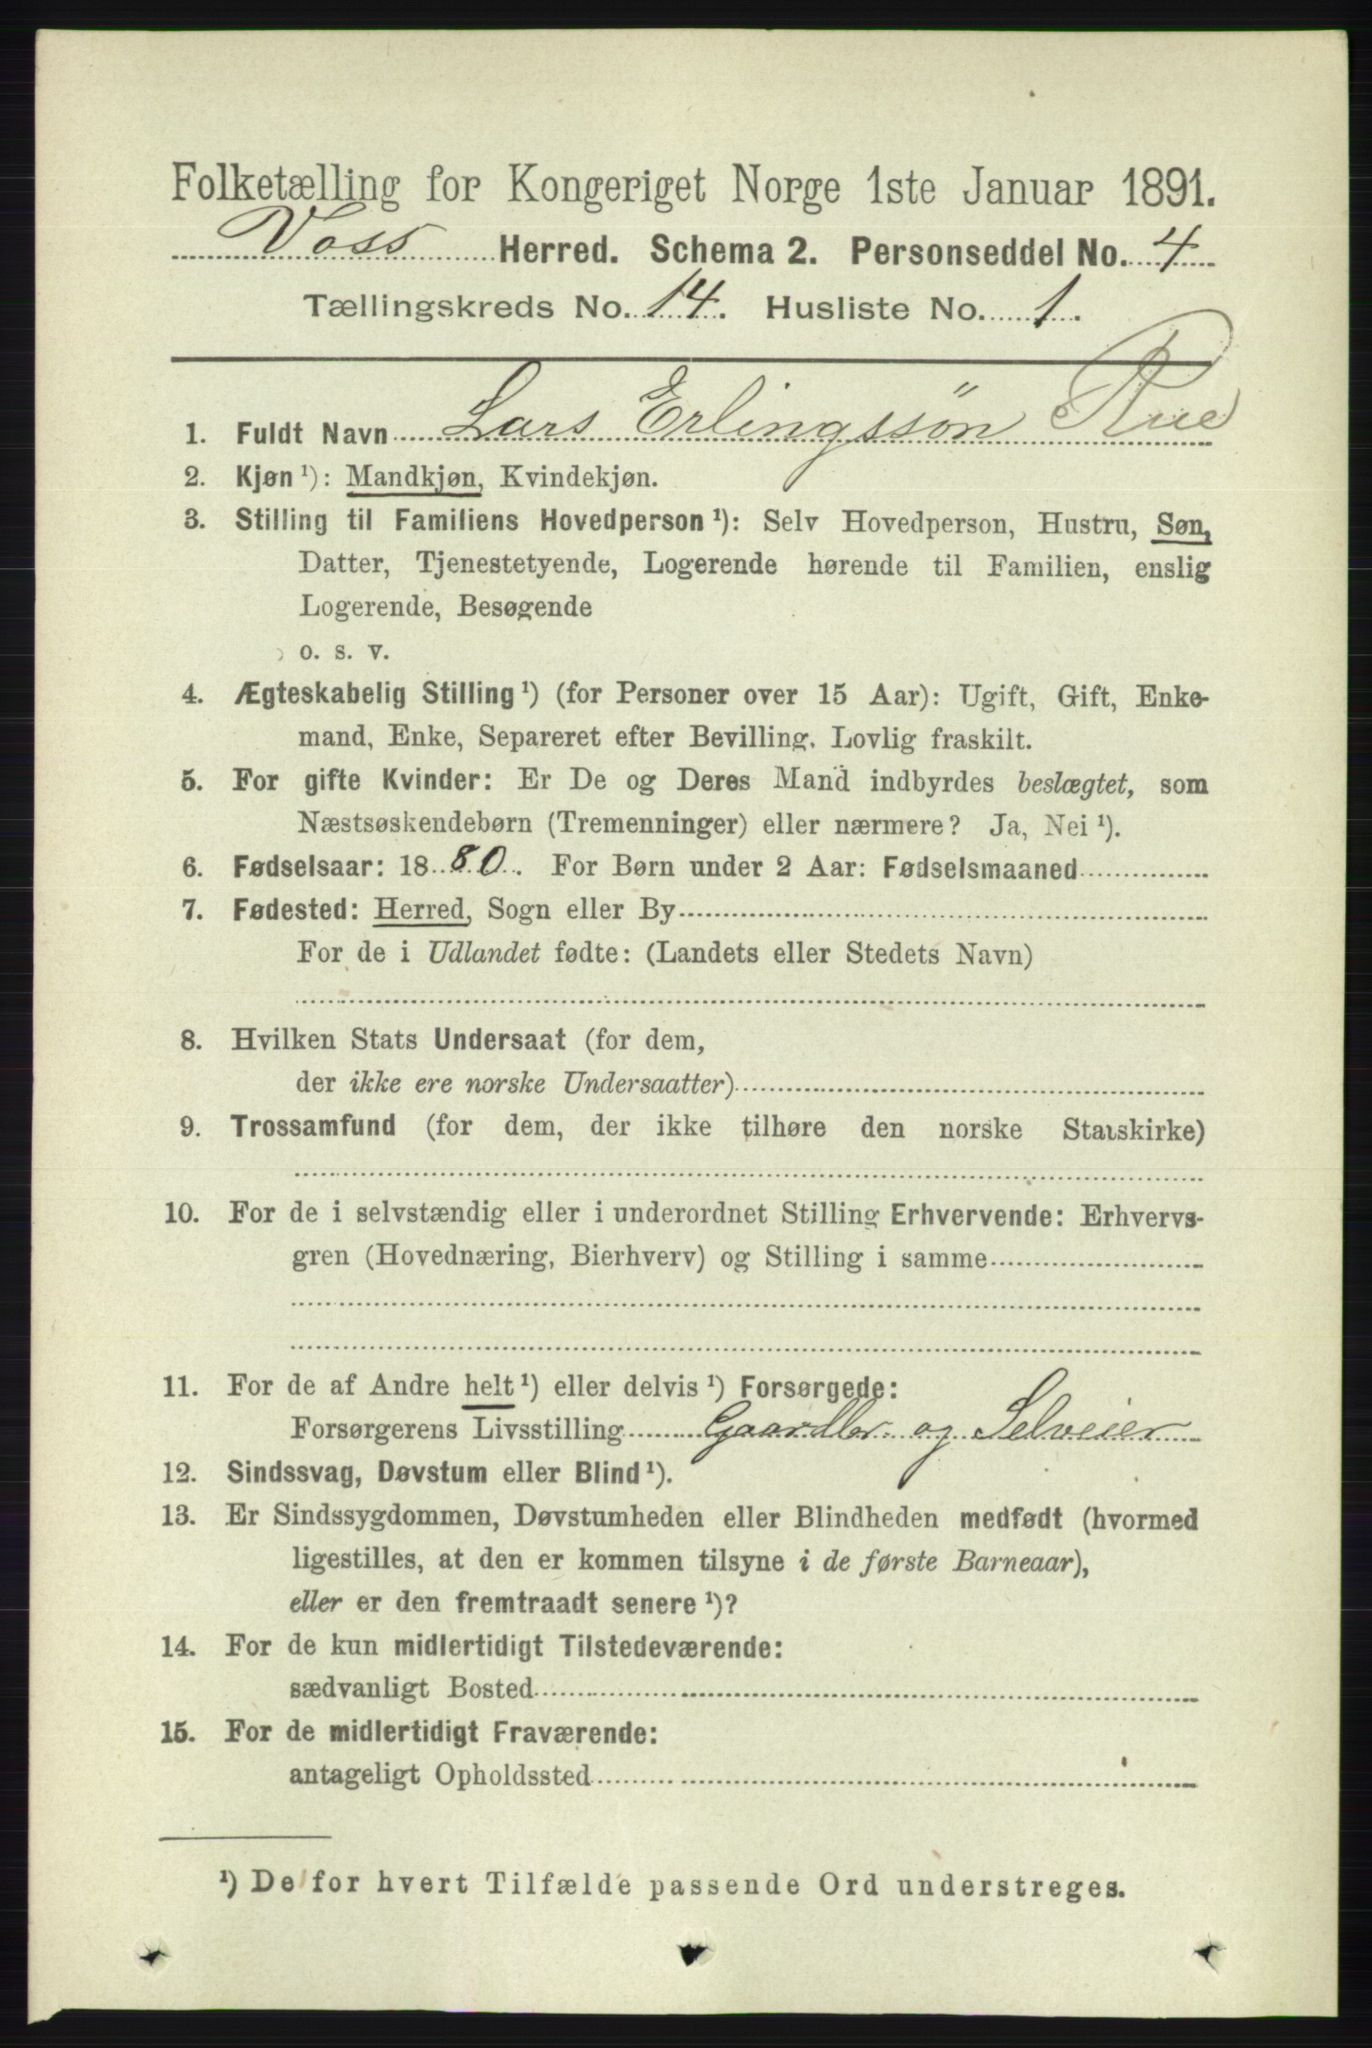 Folketælling for Kongeriget Norge 1ste Januar 1891.
Voss Herred. Schema 2. Personseddel No. 4
Tællingskreds No. 14. Husliste No. 1.
1. Fuldt Navn Lars Erlingssön Rue
2. Kjøn ¹): Mandkjøn, Kvindekjøn.
3. Stilling til Familiens Hovedperson ¹): Selv Hovedperson, Hustru, Søn,
Datter, Tjenestetyende, Logerende hørende til Familien, enslig
Logerende, Besøgende
o. s. v.
4. Ægteskabelig Stilling ¹) (for Personer over 15 Aar): Ugift, Gift, Enke-
mand, Enke, Separeret efter Bevilling. Lovlig fraskilt.
5. For gifte Kvinder: Er De og Deres Mand indbyrdes beslægtet, som
Næstsøskendebørn (Tremenninger) eller nærmere? Ja, Nei ¹).
6. Fødselsaar: 1880. For Børn under 2 Aar: Fødselsmaaned
7. Fødested: Herred, Sogn eller By
For de i Udlandet fødte: (Landets eller Stedets Navn)
8. Hvilken Stats Undersaat (for dem,
der ikke ere norske Undersaatter)
9. Trossamfund (for dem, der ikke tilhøre den norske Statskirke)
10. For de i selvstændig eller i underordnet Stilling Erhvervende: Erhvervs-
gren (Hovednæring, Bierhverv) og Stilling i samme
11. For de af Andre helt ¹) eller delvis ¹) Forsørgede:
Forsørgerens Livsstilling Gaardbr. og Selveier
12. Sindssvag, Døvstum eller Blind ¹).
13. Er Sindssygdommen, Døvstumheden eller Blindheden medfødt (hvormed
ligestilles, at den er kommen tilsyne i de første Barneaar),
eller er den fremtraadt senere ¹)?
14. For de kun midlertidigt Tilstedeværende:
sædvanligt Bosted
15. For de midlertidigt Fraværende:
antageligt Opholdssted
¹) De for hvert Tilfælde passende Ord understreges.